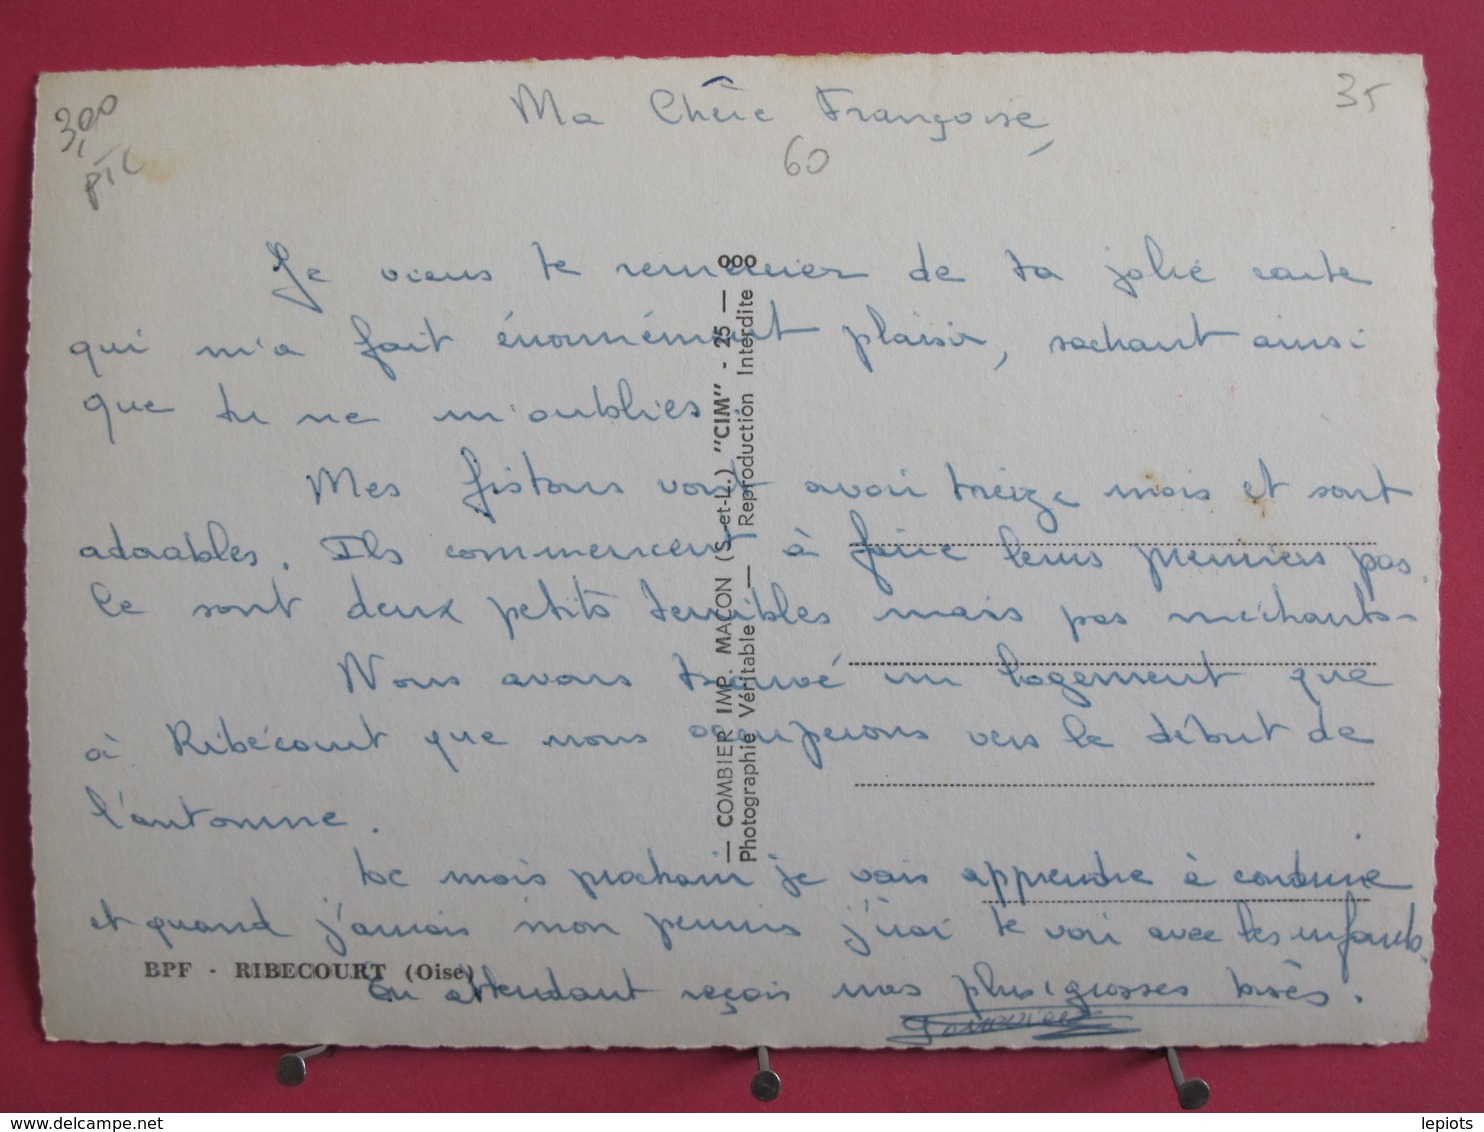 3,00
35
Ma Chère Françoise,
60
Je viens te remercier de ta jolie carte
qui m'a fait énormément plaisir, sachant ainsi
que tu ne m'oublies.
Mes fistons vont avoir treize mois et sont
adorables. Ils commencent à faire leurs premiers pas.
Ce sont deux petits terribles mais pas méchants.
Nous avons trouvé un logement que
à Ribécourt que nous occuperons vers le début de
l'automne.
Le mois prochain je vais apprendre à conduire
et quand j'aurais mon permis j'irai te voir avec les enfants.
En attendant reçois mes plus grosses bises.
— COMBIER IMP. MACON (S.-et-L.) "CIM" - 25 — 000
Photographie Véritable — Reproduction Interdite
BPF - RIBECOURT (Oise)
lepiots